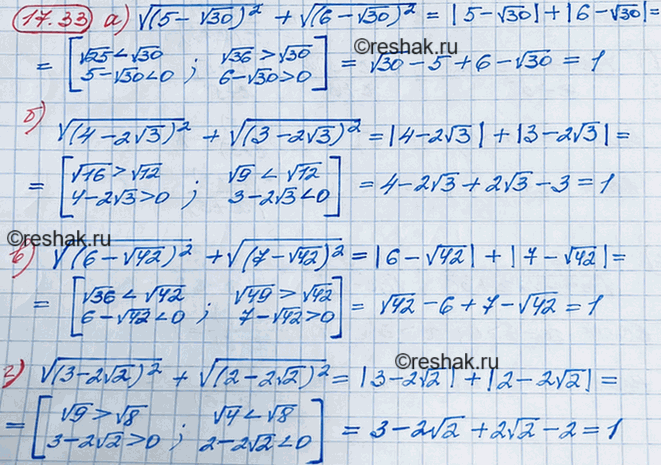 17.33 а) √(5-√30)² + √(6-√30)² = |5-√30| + |6-√30| =
©reshak.ru
= [√25<√30 ; √36>√30
5-√30<0 ; 6-√30>0] = √30-5+6-√30 = 1
б) √(4-2√3)² + √(3-2√3)² = |4-2√3| + |3-2√3| =
= [√16>√12 ; √9<√12
4-2√3>0 ; 3-2√3<0] = 4-2√3+2√3-3=1
©reshak.ru
в) √(6-√42)² + √(7-√42)² = |6-√42| + |7-√42| =
= [√36<√42 ; √49>√42
6-√42<0 ; 7-√42>0] = √42-6+7-√42=1
©reshak.ru
г) √(3-2√2)² + √(2-2√2)² = |3-2√2| + |2-2√2| =
= [√9>√8 ; √4<√8
3-2√2>0 ; 2-2√2<0] = 3-2√2+2√2-2=1